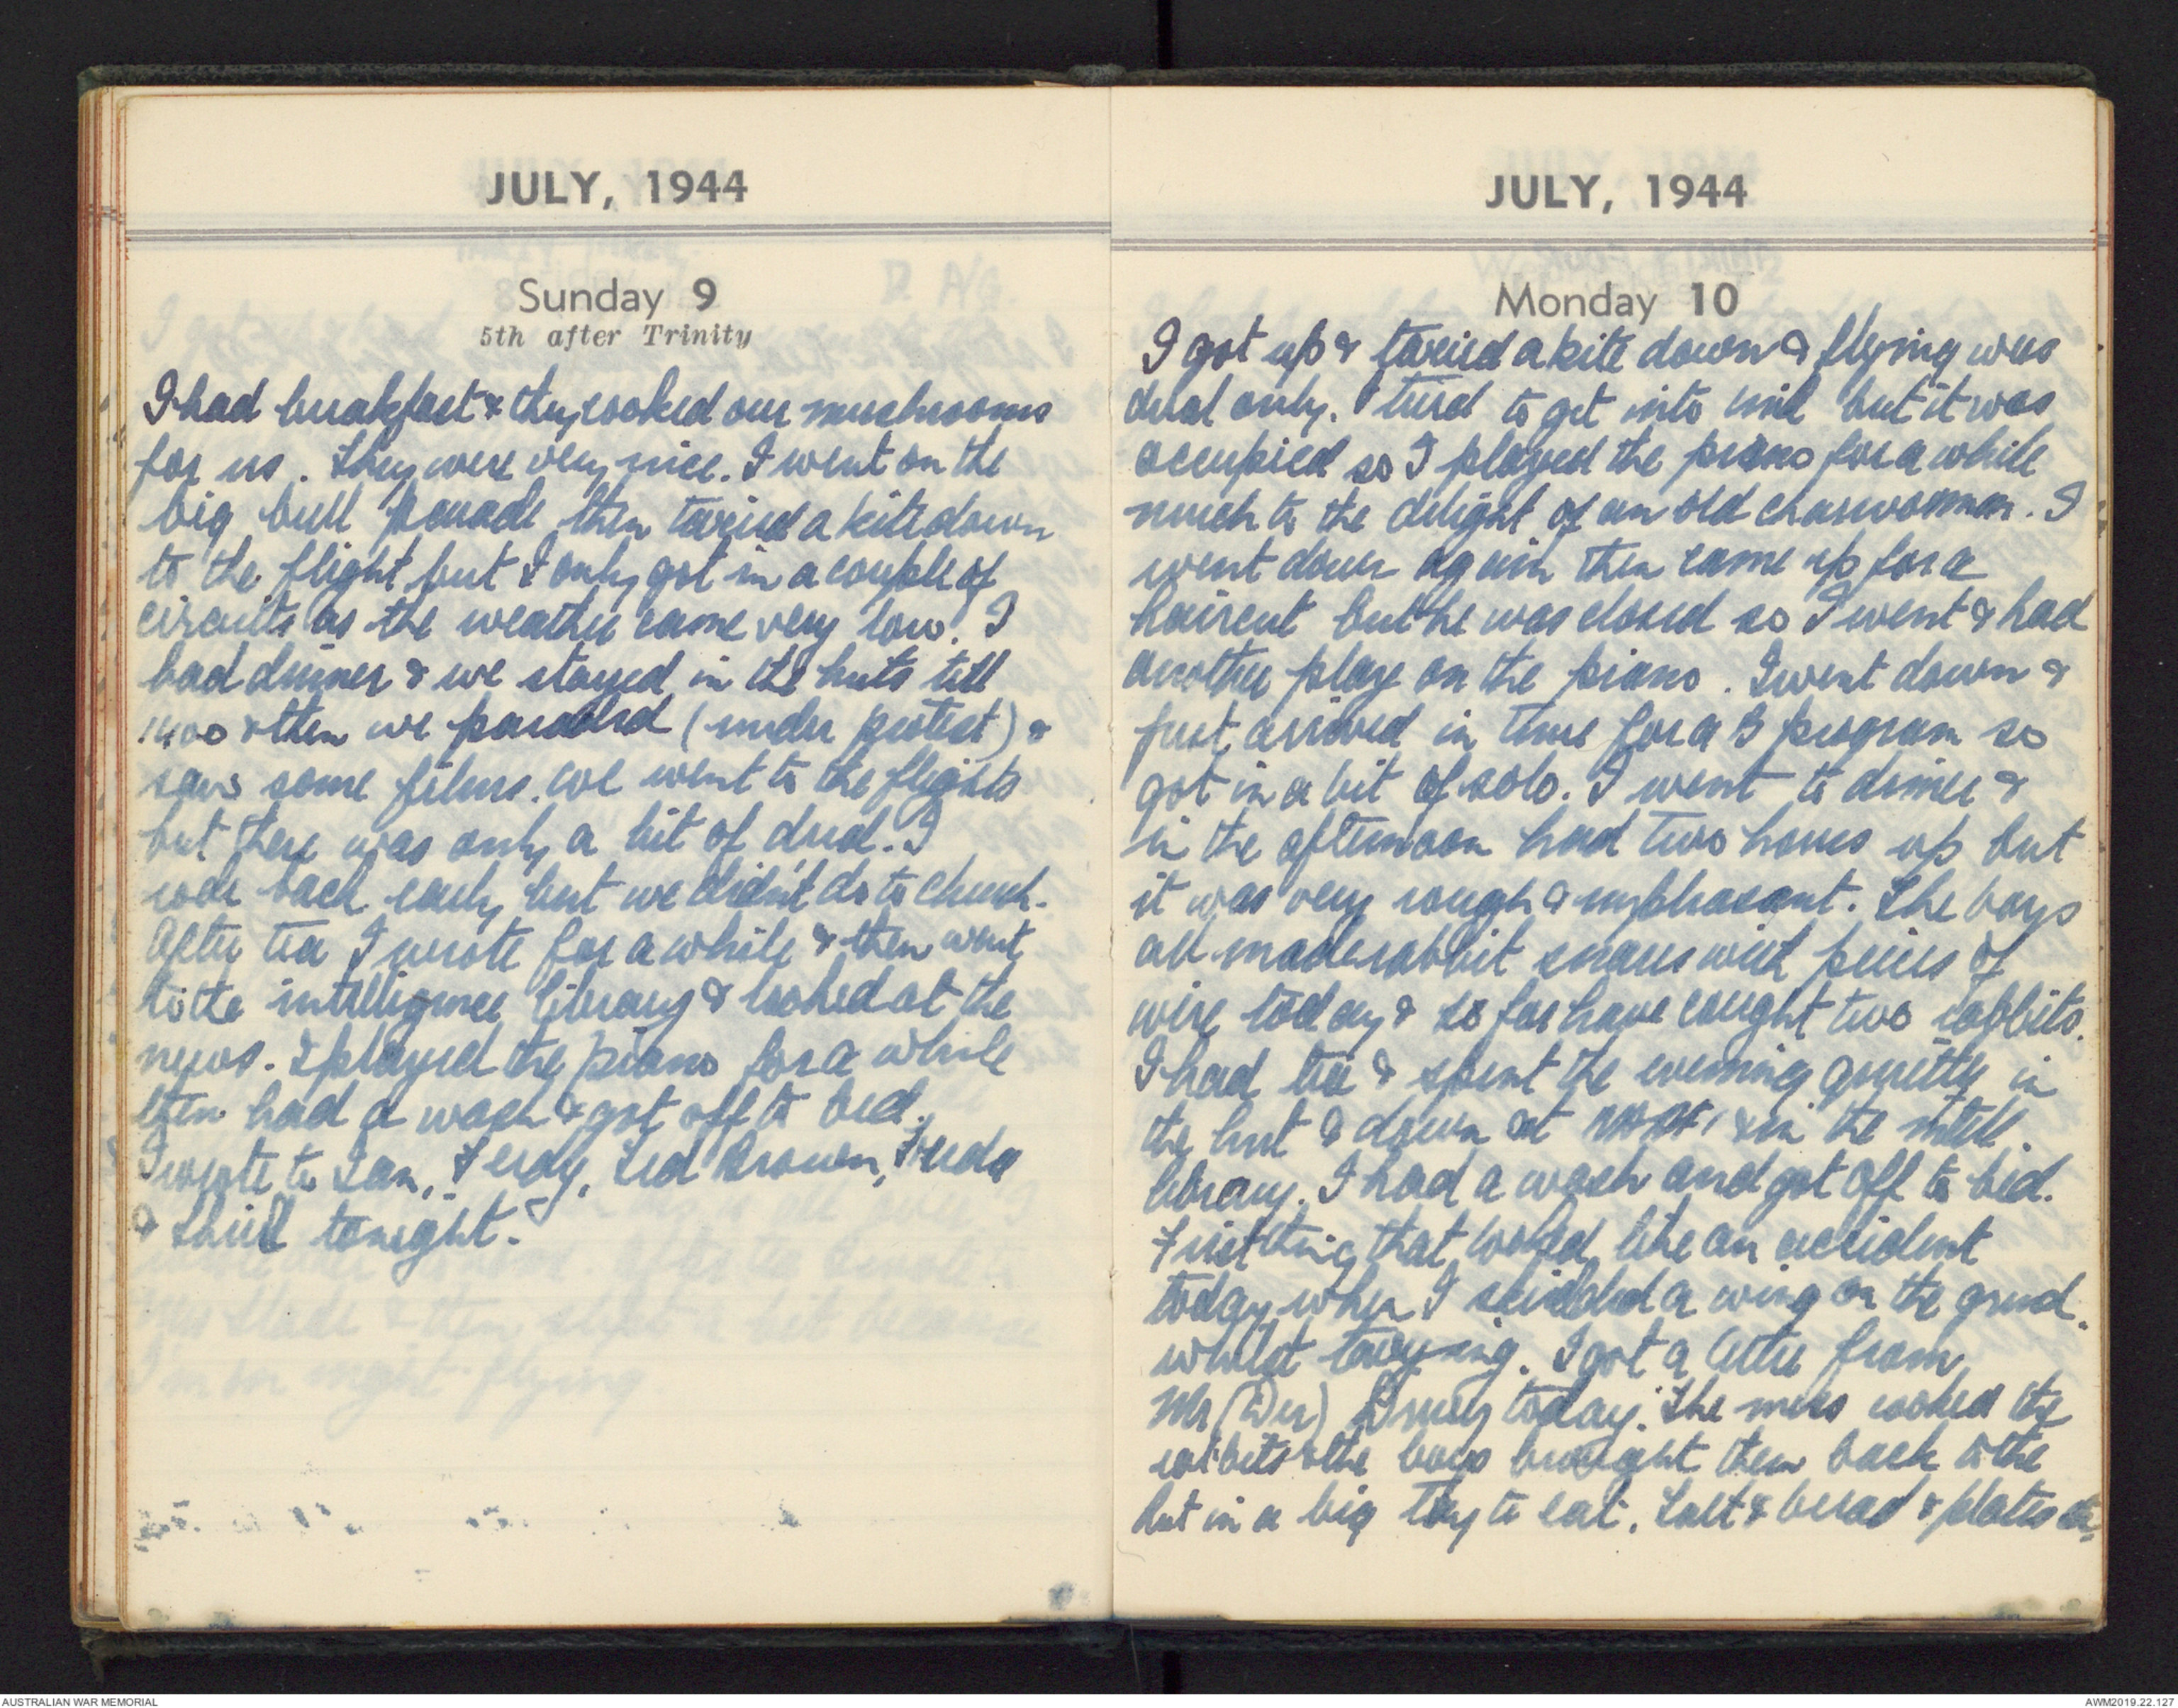 JULY, 1944
Sunday 9
5th after Trinity
I had breakfast & they cooked our mushrooms
for us. They were very nice. I went on the
big bull parade then taxied a kite down
to the flight but I only got in a couple of
circuits as the weather came very low. I
had dinner & we stayed in the huts till
1400 & then we paraded (under protest) &
saw some films. We went to the flights
but there was only a bit of dual. I
rode back early but we didn't do to church.
After tea I wrote for a while & then went
to the intelligence library & looked at the
news. I played the piano for a while
then had a wash & got off to bed.
I wrote to Ian, Ferdy, Ted Brown, Freda
& tonight.
JULY, 1944
Monday 10
I got up & taxied a kite down & flying was
dual only. I tried to get into link but it was
occupied so I played the piano for a while
much to the delight of an old charwoman. I
went down again then came up for a
haircut but he was closed so I went & had
another play on the piano. I went down &
just arrived in time for a B program so
got in a bit of solo. I went to dinner &
in the afternoon had two hours up but
it was very rough & unpleasant. The boys
all made rabbit snares with pieces of
wire today & so far have caught two rabbits.
I had tea & spent the evening quietly in
the hut & down at & in the intell.
library. I had a wash and got off to bed.
First thing that looked like an accident
today when I skidded a wing on the grnd.
whilst taxying. I got a letter from
Mr (Der) Drury today. The mess cooked the
rabbits & the boys brought them back to the
hut in a big tray to eat. Salt & bread & plates
AUSTRALIAN WAR MEMORIAL
AWM2019.22.127